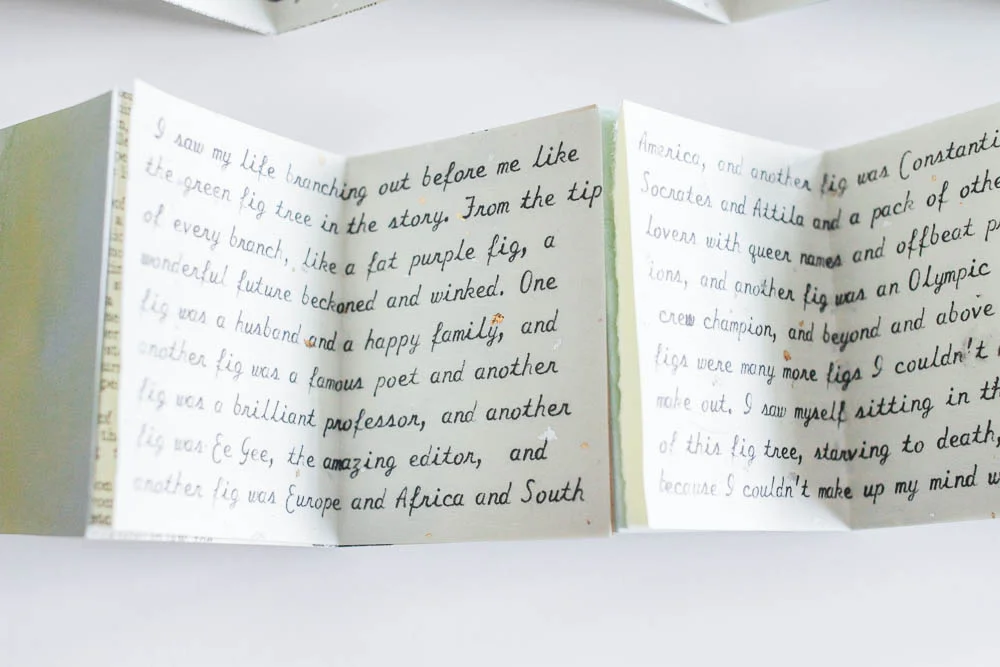 I saw my life branching out before me like
the green fig tree in the story. From the tip
of every branch, like a fat purple fig, a
wonderful future beckoned and winked. One
fig was a husband and a happy family, and
another fig was a famous poet and another
fig was a brilliant professor, and another
fig was Ee Gee, the amazing editor, and
another fig was Europe and Africa and South
America, and another fig was Constanti
Socrates and Attila and a pack of othe
lovers with queer names and offbeat p
ions, and another fig was an Olympic
crew champion, and beyond and above
figs were many more figs I couldn't
make out. I saw myself sitting in th
of this fig tree, starving to death,
because I couldn't make up my mind w